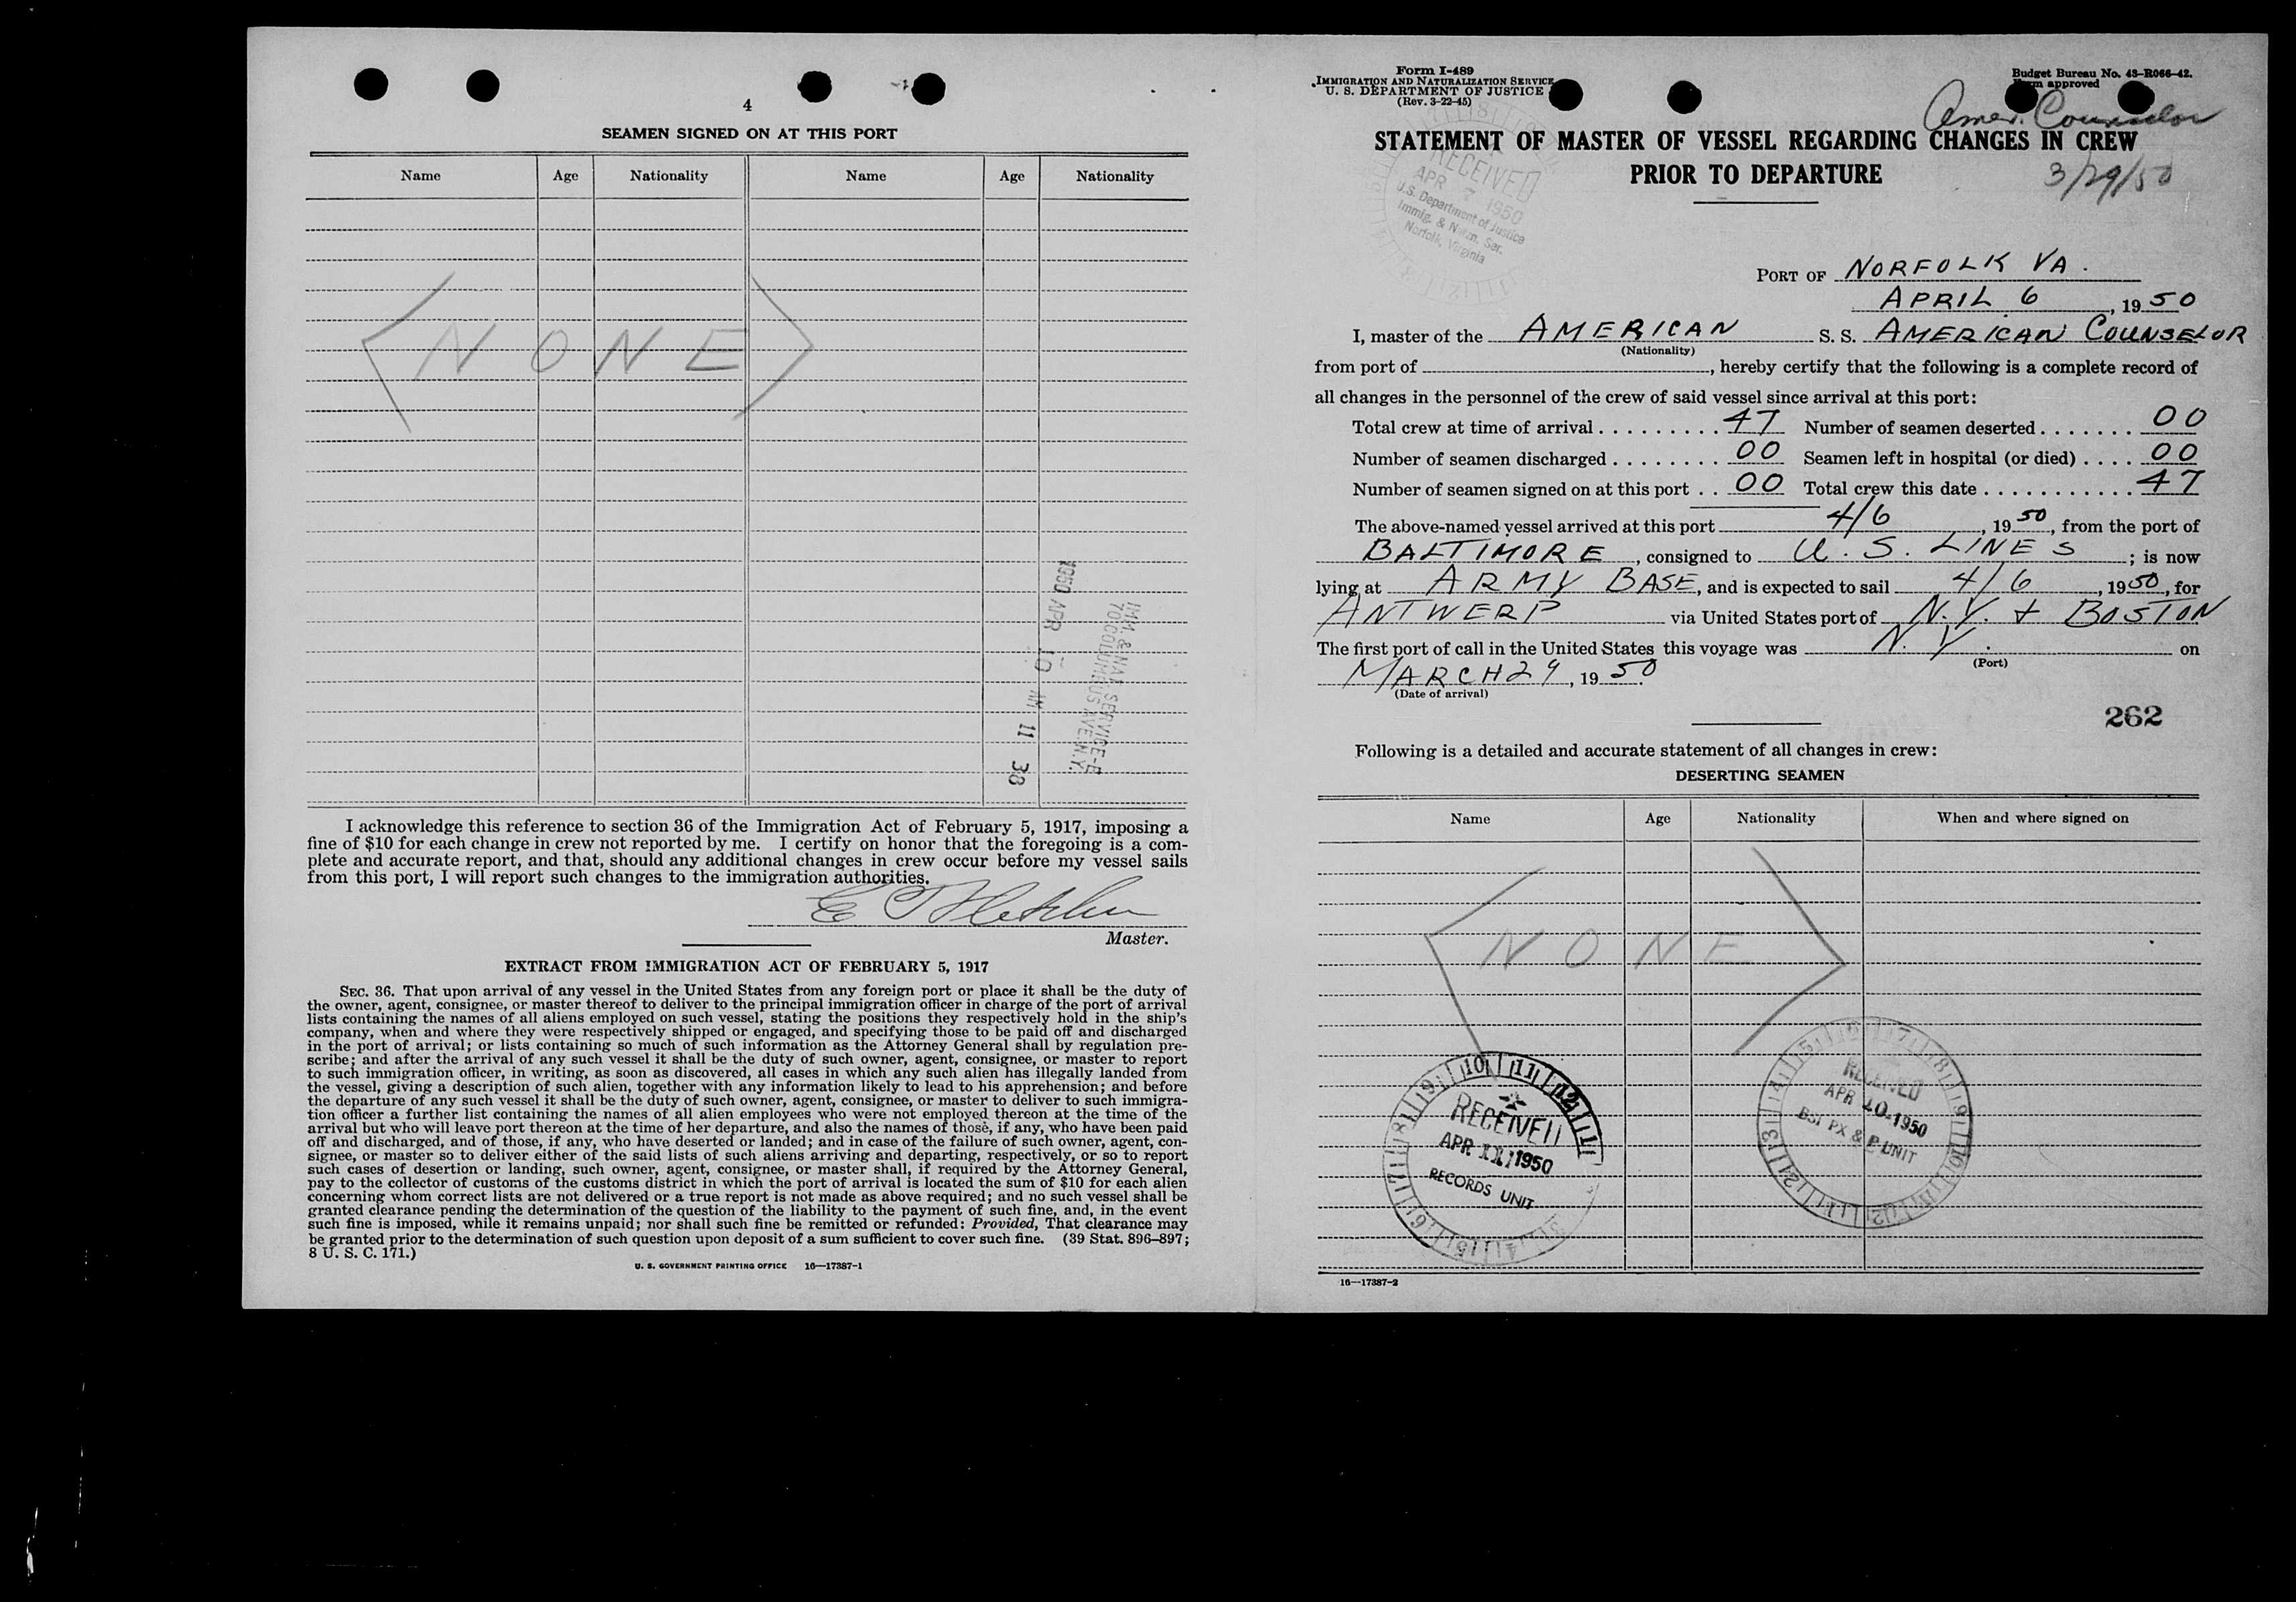 4
SEAMEN SIGNED ON AT THIS PORT
Name Age Nationality Name Age Nationality
NONE
1950 APR 10 AM 11 38
IMM. & NAT. SERVICE-E
70 COLUMBUS AVE. N.Y.
I acknowledge this reference to section 36 of the Immigration Act of February 5, 1917, imposing a
fine of $10 for each change in crew not reported by me. I certify on honor that the foregoing is a com-
plete and accurate report, and that, should any additional changes in crew occur before my vessel sails
from this port, I will report such changes to the immigration authorities.
Master.
EXTRACT FROM IMMIGRATION ACT OF FEBRUARY 5, 1917
SEC. 36. That upon arrival of any vessel in the United States from any foreign port or place it shall be the duty of
the owner, agent, consignee, or master thereof to deliver to the principal immigration officer in charge of the port of arrival
lists containing the names of all aliens employed on such vessel, stating the positions they respectively hold in the ship's
company, when and where they were respectively shipped or engaged, and specifying those to be paid off and discharged
in the port of arrival; or lists containing so much of such information as the Attorney General shall by regulation pre-
scribe; and after the arrival of any such vessel it shall be the duty of such owner, agent, consignee, or master to report
to such immigration officer, in writing, as soon as discovered, all cases in which any such alien has illegally landed from
the vessel, giving a description of such alien, together with any information likely to lead to his apprehension; and before
the departure of any such vessel it shall be the duty of such owner, agent, consignee, or master to deliver to such immigra-
tion officer a further list containing the names of all alien employees who were not employed thereon at the time of the
arrival but who will leave port thereon at the time of her departure, and also the names of those, if any, who have been paid
off and discharged, and of those, if any, who have deserted or landed; and in case of the failure of such owner, agent, con-
signee, or master so to deliver either of the said lists of such aliens arriving and departing, respectively, or so to report
such cases of desertion or landing, such owner, agent, consignee, or master shall, if required by the Attorney General,
pay to the collector of customs of the customs district in which the port of arrival is located the sum of $10 for each alien
concerning whom correct lists are not delivered or a true report is not made as above required; and no such vessel shall be
granted clearance pending the determination of the question of the liability to the payment of such fine, and, in the event
such fine is imposed, while it remains unpaid; nor shall such fine be remitted or refunded: Provided, That clearance may
be granted prior to the determination of such question upon deposit of a sum sufficient to cover such fine. (39 Stat. 896–897;
8 U. S. C. 171.)
U. S. GOVERNMENT PRINTING OFFICE 16—17387-1
Form I-489
IMMIGRATION AND NATURALIZATION SERVICE
U. S. DEPARTMENT OF JUSTICE
(Rev. 3-22-45)
Budget Bureau No. 43–R066–42.
approved
Amer. Counselor
STATEMENT OF MASTER OF VESSEL REGARDING CHANGES IN CREW
PRIOR TO DEPARTURE
3/29/50
RECEIVED
APR 7 1950
U.S. Department of Justice
Immig. & Natzn. Ser.
Norfolk, Virginia
PORT OF NORFOLK VA.
APRIL 6, 1950
I, master of the AMERICAN S. S. AMERICAN COUNSELOR
(Nationality)
from port of , hereby certify that the following is a complete record of
all changes in the personnel of the crew of said vessel since arrival at this port:
Total crew at time of arrival . . . . . . . . . 47 Number of seamen deserted . . . . . . . 00
Number of seamen discharged . . . . . . . . 00 Seamen left in hospital (or died) . . . . 00
Number of seamen signed on at this port . . 00 Total crew this date . . . . . . . . . . . 47
The above-named vessel arrived at this port 4/6, 1950, from the port of
BALTIMORE, consigned to U. S. LINES; is now
lying at ARMY BASE, and is expected to sail 4/6, 1950, for
ANTWERP via United States port of N.Y. + BOSTON
The first port of call in the United States this voyage was N. Y. on
(Port)
MARCH 29, 1950
(Date of arrival)
262
Following is a detailed and accurate statement of all changes in crew:
DESERTING SEAMEN
Name Age Nationality When and where signed on
NONE
RECEIVED
APR 11 1950
RECORDS UNIT
RECEIVED
APR 10 1950
BSI PX & P UNIT
16—17387-2